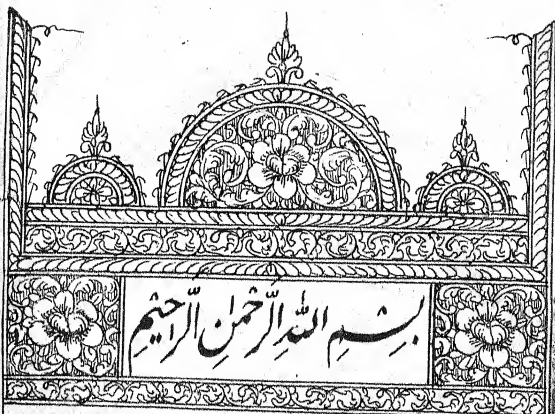 بِسْمِ اللهِ الَّرحْمٰنِ الَّرحِيْمِ